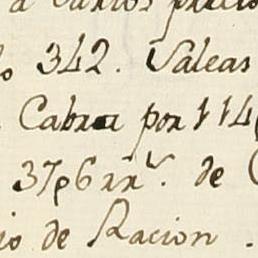 a varios precio
342. Valeas
Cabra por 114
37p6 rrs. de
io de Racion.